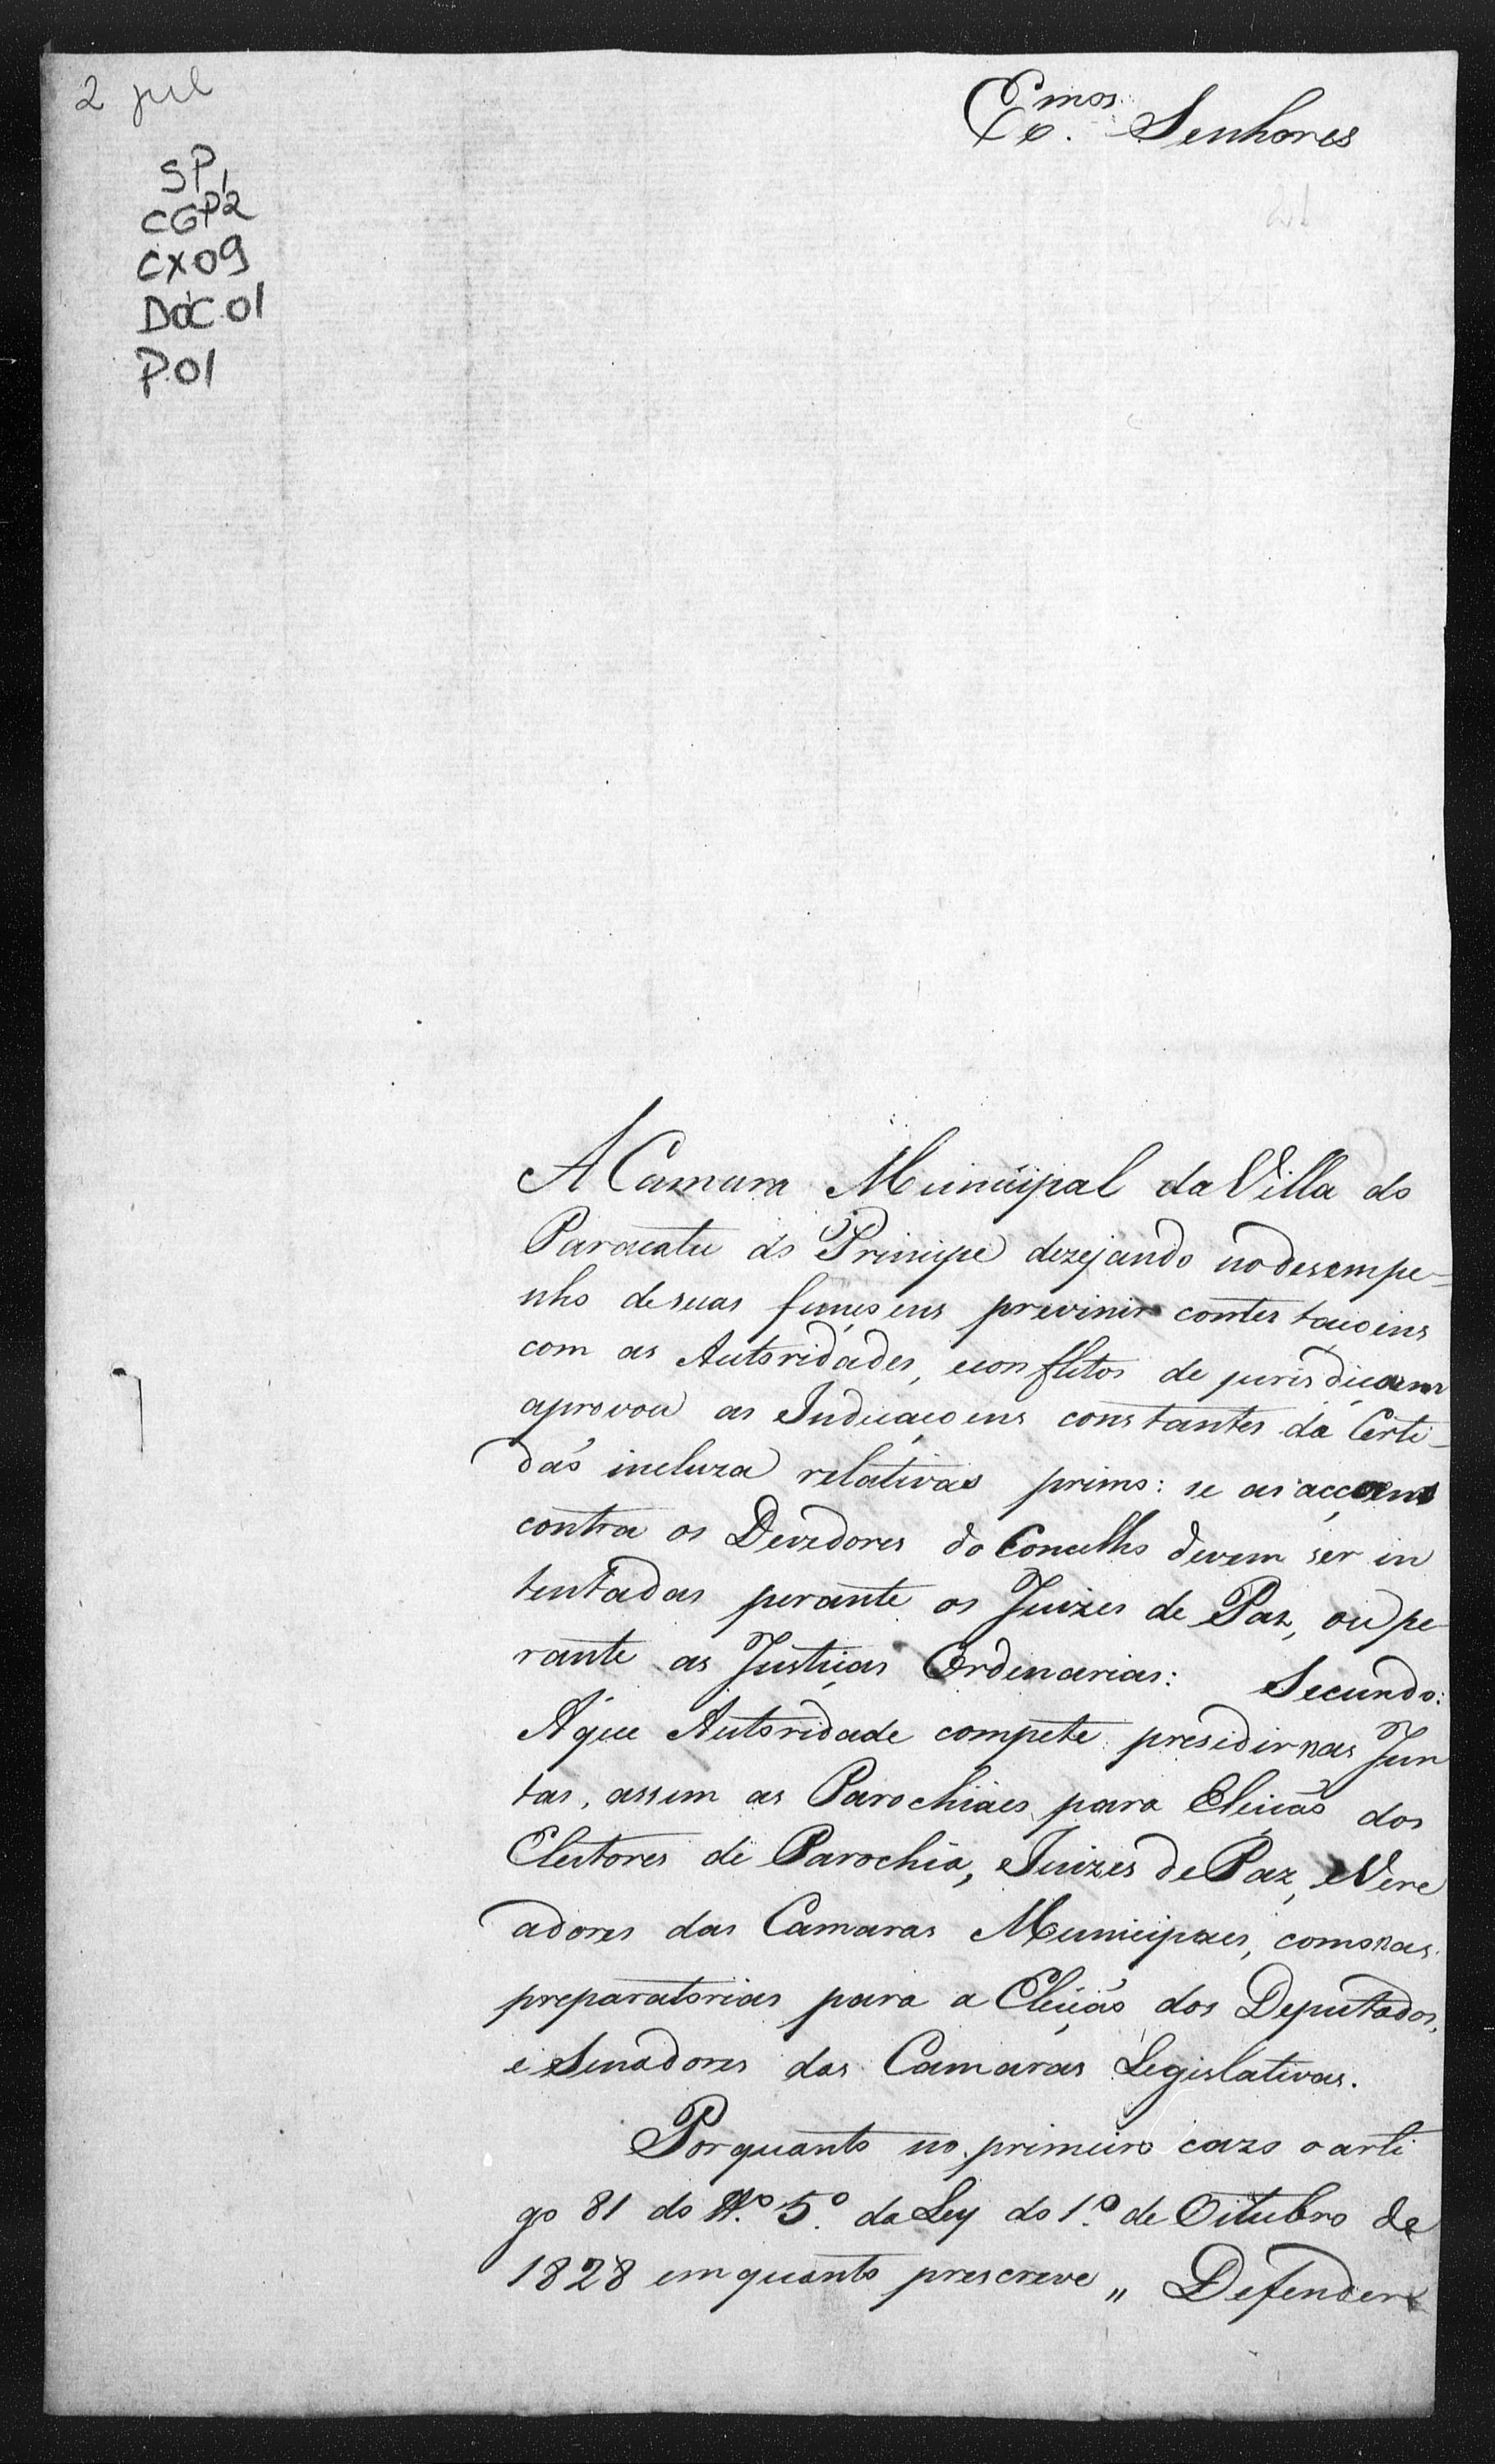 2 jul
Ex.mos Senhores
SP1
CGP2
CX09
DOC.01
P.01
A Camara Municipal da Villa do
Paracatu do Principe dezejando no desempe-
nho de suas funçoens previnir contestaçoens
com as Autoridades, e conflitos de jurisdicoens
aprovou as Indicaçoens constantes da Certi-
dáo incluza relativas primo: se as accoens
contra os Devedores do Concelho devem ser in
tentadas perante os Juizes de Paz, ou pe-
rante as Justiças Ordenarias: Secundo:
A que Autoridade compete presidir nas Jun
tas, assim as Parochiaes para Eleicáo dos
Eleitores de Parochia, e Juizes de Paz, e Vere
adores das Camaras Municipaes, como nas
preparatorias para a Eleiçáo dos Deputados,
e Senadores das Camaras Legislativas.
Porquanto no primeiro cazo o arti
go 81 do N.º 5.º da Ley do 1.º de Oitubro de
1828 em quanto prescreve „ Defender